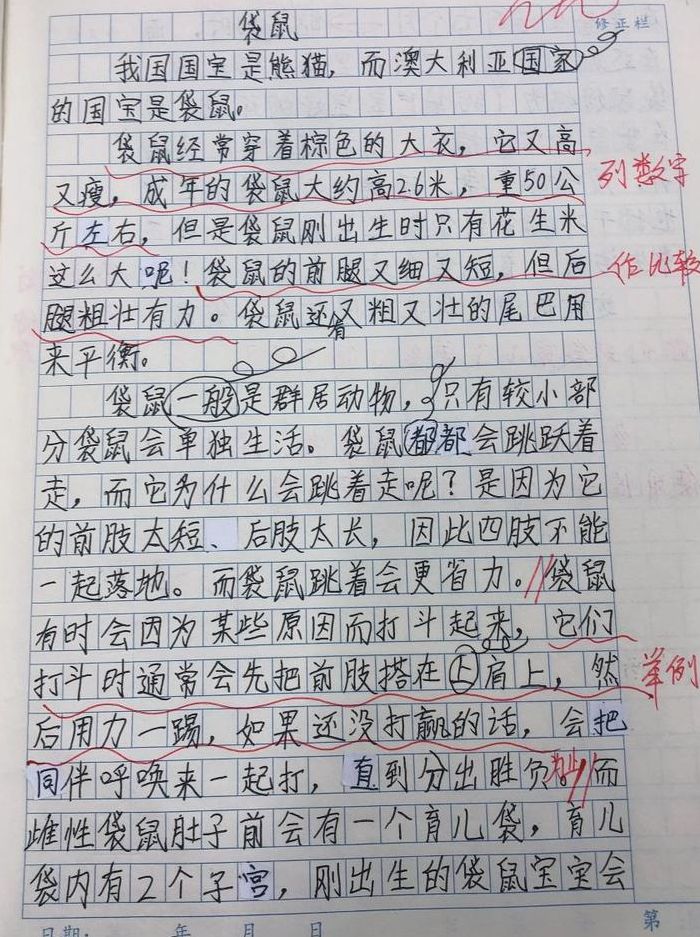 袋鼠
修正栏
我国国宝是熊猫，而澳大利亚国家
的国宝是袋鼠。
袋鼠经常穿着棕色的大衣，它又高
又瘦，成年的袋鼠大约高2.6米，重50公
列数字
斤左右，但是袋鼠刚出生时只有花生米
这么大呢！袋鼠的前腿又细又短，但后
作比较
腿粗壮有力。袋鼠还有又粗又壮的尾巴用
来平衡。
袋鼠一般是群居动物，只有较小部
分袋鼠会单独生活。袋鼠都都会跳跃着
走，而它为什么会跳着走呢？是因为它
的前肢太短、后肢太长，因此四肢不能
一起落地。而袋鼠跳着会更省力。//袋鼠
有时会因为某些原因而打斗起来，它们
打斗时通常会先把前肢搭在上肩上，然
举例
后用力一踢，如果还没打赢的话，会把
同伴呼唤来一起打，直到分出胜负为止//而
雌性袋鼠肚子前会有一个育儿袋，育儿
袋内有2个子宫，刚出生的袋鼠宝宝会
日期： 年 月 日
第